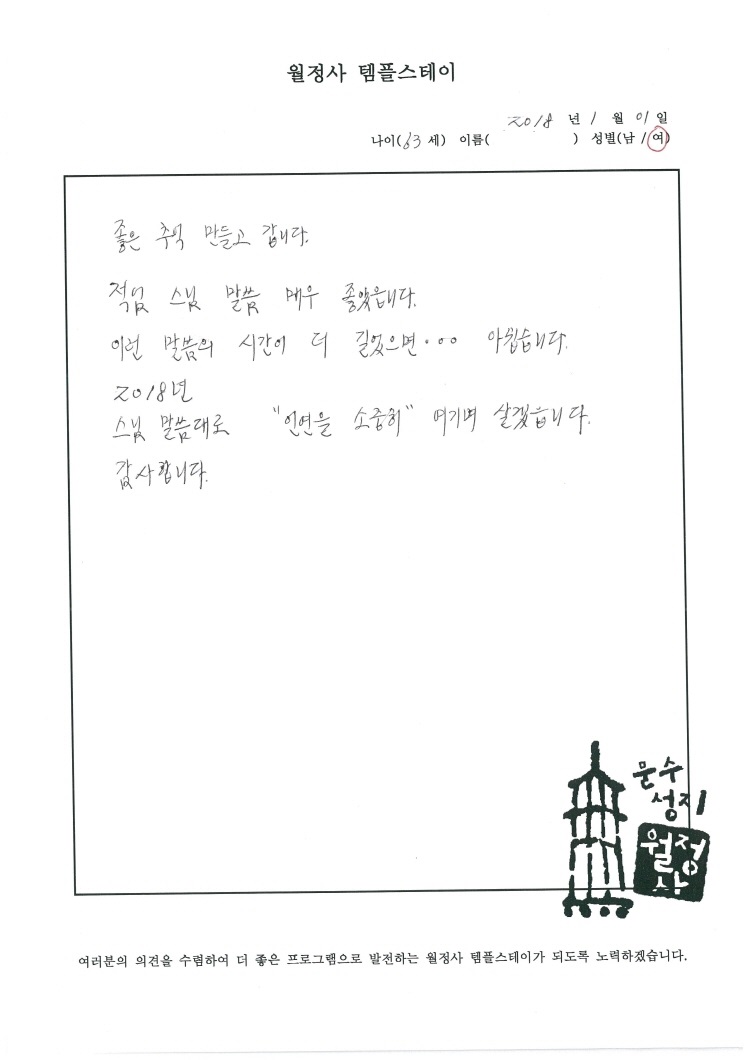 월정사 템플스테이
2018 년 1 월 01 일
나이(63 세) 이름( ) 성별(남 / 여)
좋은 추억 만들고 갑니다.
적엄 스님 말씀 매우 좋았읍니다.
이런 말씀의 시간이 더 길었으면... 아쉽습니다.
2018년
스님 말씀대로 "인연을 소중히" 여기며 살겠읍니다.
감사합니다.
문수
성지
월정
사
여러분의 의견을 수렴하여 더 좋은 프로그램으로 발전하는 월정사 템플스테이가 되도록 노력하겠습니다.